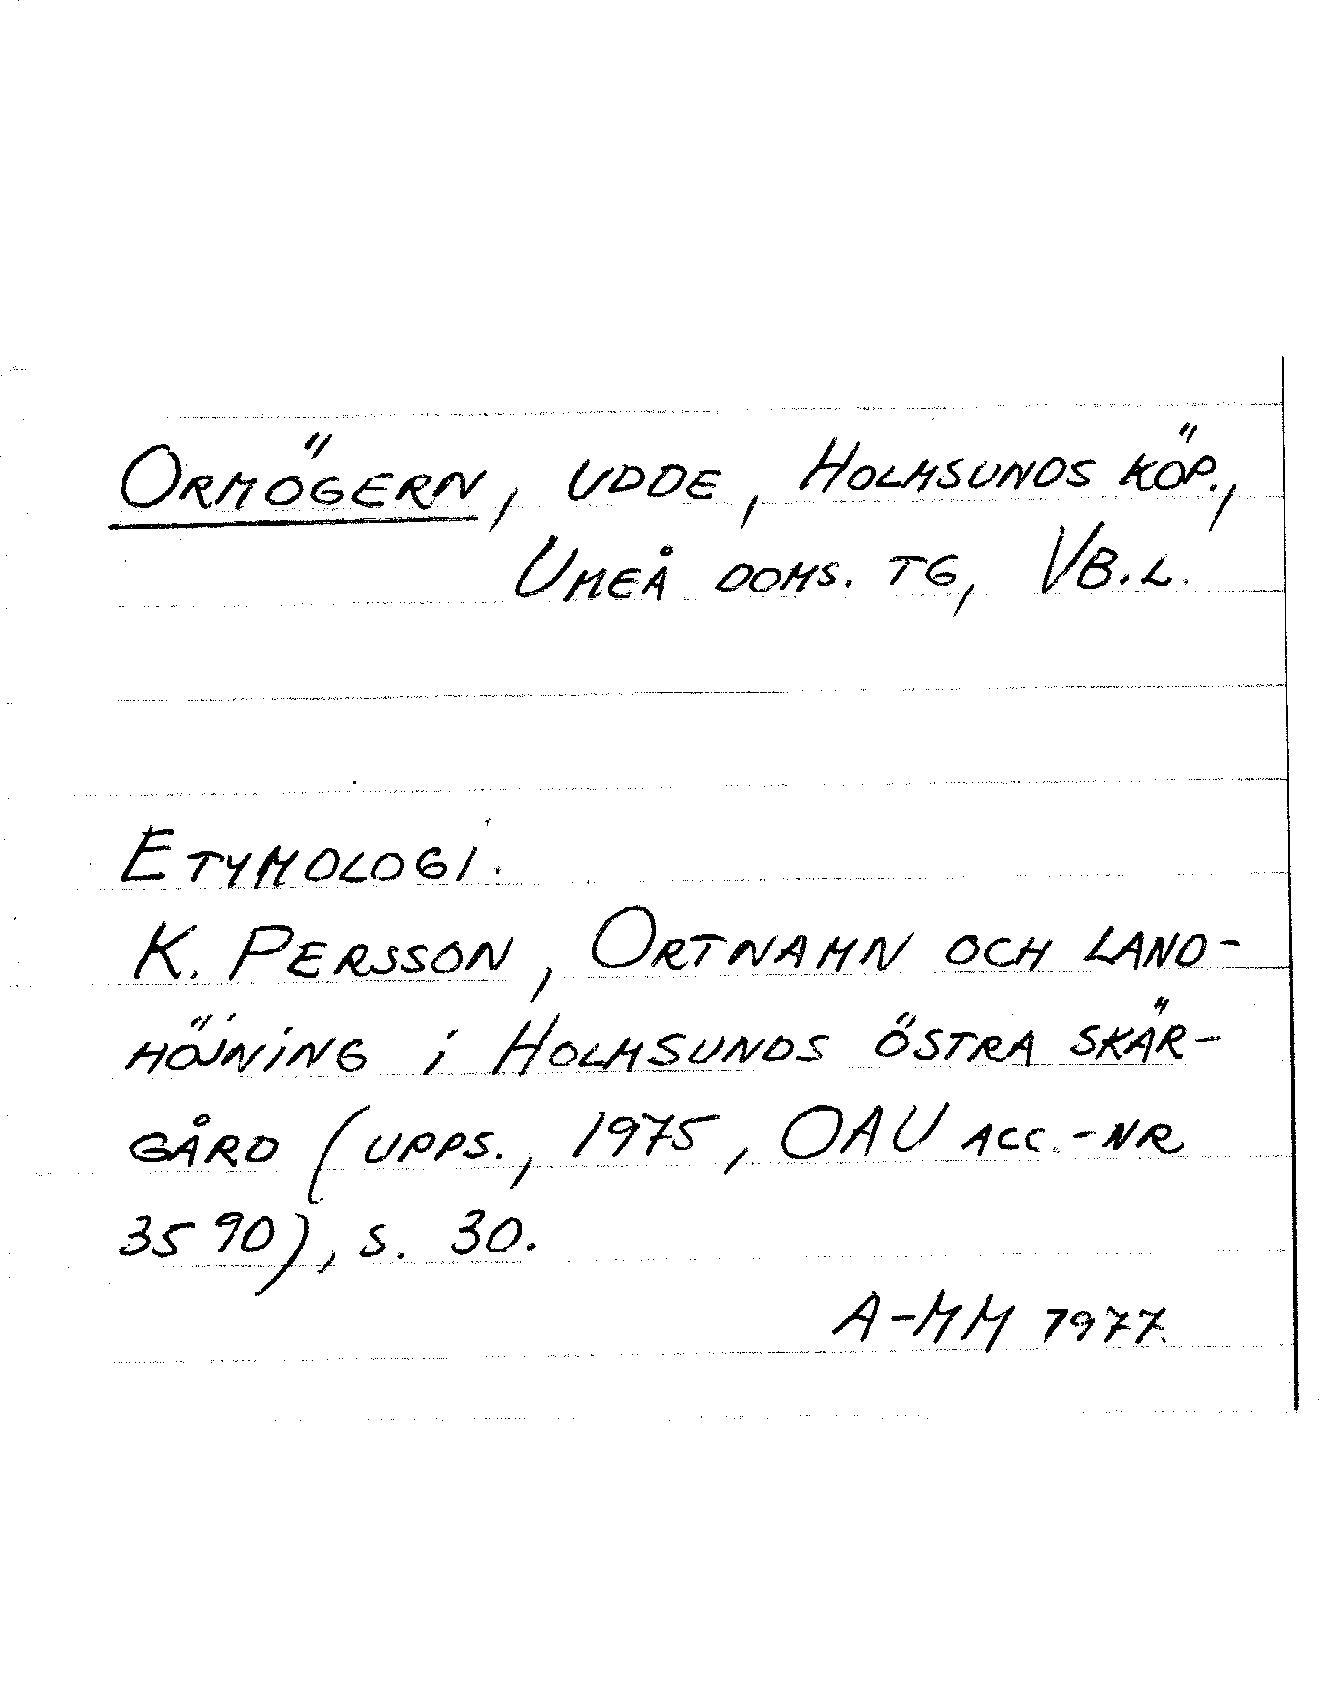 ORMÖGERN, UDDE, HOLMSUNDS KÖP.,
UMEÅ DOMS. TG, VB.L.
ETYMOLOGI.
K. PERSSON, ORTNAMN OCH LAND-
HÖJNING I HOLMSUNDS ÖSTRA SKÄR-
GÅRD (UPPS., 1975, OAU ACC.-NR
3590), S. 30.
A-MM 1977